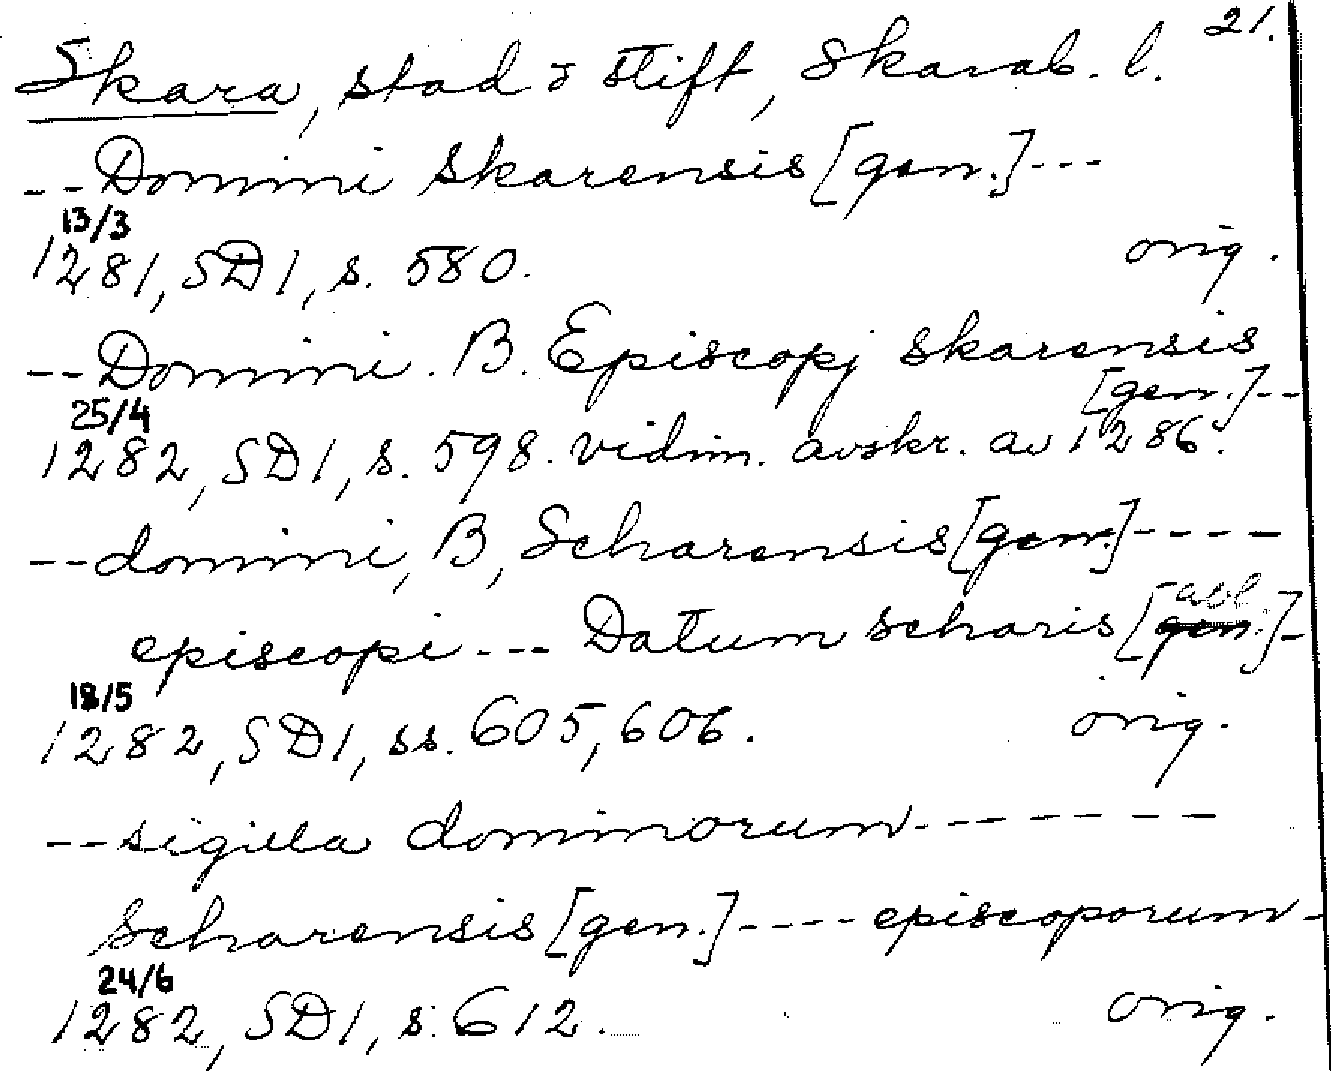 21.
Skara, stad o stift, Skarab. l.
--Domini Skarensis [gen.]---
13/3
1281, SD1, s. 580. orig.
--Domini. B. Episcopj skarensis
[gen.]--
25/4
1282, SD1, s. 598. vidim. avskr. av 1286.
--domini, B, Scharensis [gen.]-----
episcopi --- Datum scharis [gen.]-
abl.
18/5
1282, SD1, ss. 605, 606. orig.
--sigilla dominorum-------
Scharensis [gen.]---- episcoporum-
24/6
1282, SD1, s. 612. orig.